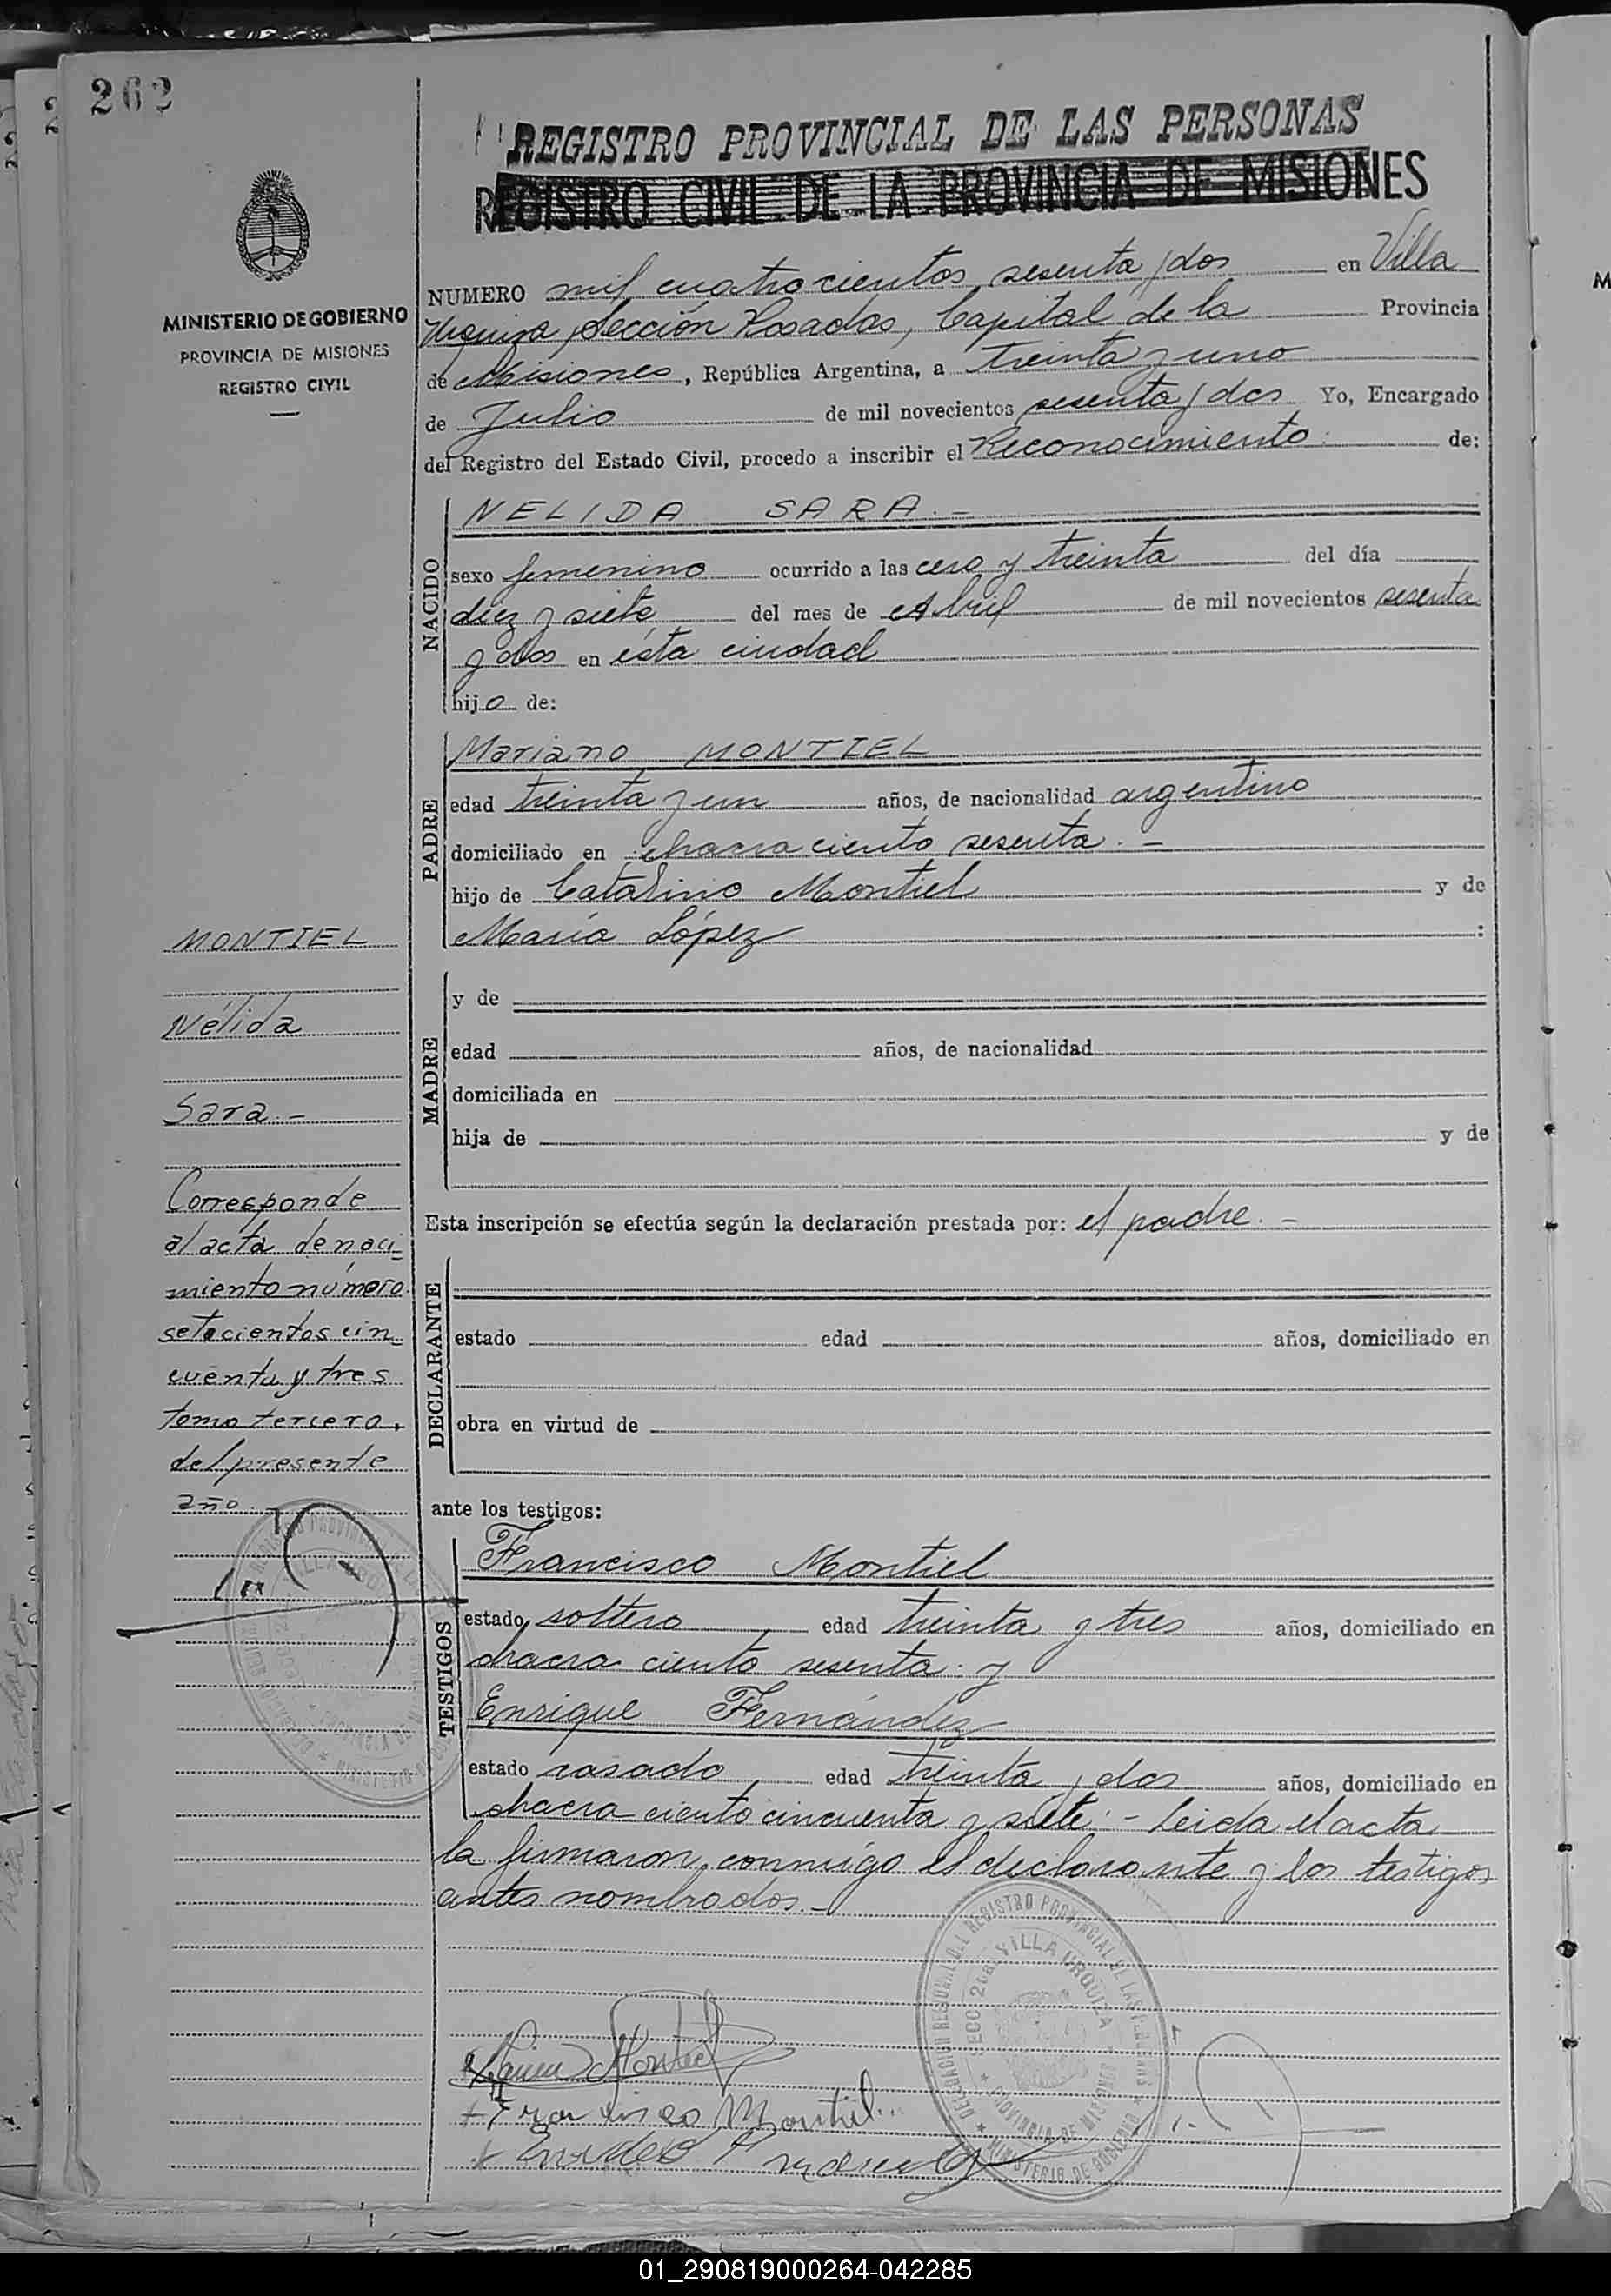 262
REGISTRO PROVINCIAL DE LAS PERSONAS
REGISTRO CIVIL DE LA PROVINCIA DE MISIONES
MINISTERIO DE GOBIERNO
PROVINCIA DE MISIONES
REGISTRO CIVIL
NUMERO mil cuatrocientos sesenta y dos en Villa
Urquiza, Sección Posadas, Capital de la Provincia
de Misiones, República Argentina, a treinta y uno
de Julio de mil novecientos sesenta y dos Yo, Encargado
del Registro del Estado Civil, procedo a inscribir el Reconocimiento. de:
NACIDO
NELIDA SARA.-
sexo femenino ocurrido a las cero y treinta del día
diez y siete del mes de Abril de mil novecientos sesenta
y dos en ésta ciudad
hija de:
PADRE
Mariano MONTIEL
edad treinta y un años, de nacionalidad argentino
domiciliado en chacra ciento sesenta.-
hijo de Catalino Montiel y de
María López :
MADRE
y de
edad años, de nacionalidad
domiciliada en
hija de y de
Esta inscripción se efectúa según la declaración prestada por: el padre.-
DECLARANTE
estado edad años, domiciliado en
obra en virtud de
ante los testigos:
TESTIGOS
Francisco Montiel
estado soltero edad treinta y tres años, domiciliado en
chacra ciento sesenta. y
Enrique Fernández
estado casado edad treinta y dos años, domiciliado en
chacra ciento cincuenta y siete.- Leida el acta
la firmaron conmigo el declarante y los testigos
antes nombrados.-
MONTIEL
Nélida
Sara.-
Corresponde
al acta de naci-
miento número
setecientos cin-
cuenta y tres
tomo tercero,
del presente
año.-
Montiel
Francisco Montiel
DELEGACION REGIONAL DEL REGISTRO PROVINCIAL DE LAS PERSONAS
SECC 2da. VILLA URQUIZA
PROVINCIA DE MISIONES
MINISTERIO DE GOBIERNO
01_290819000264-042285